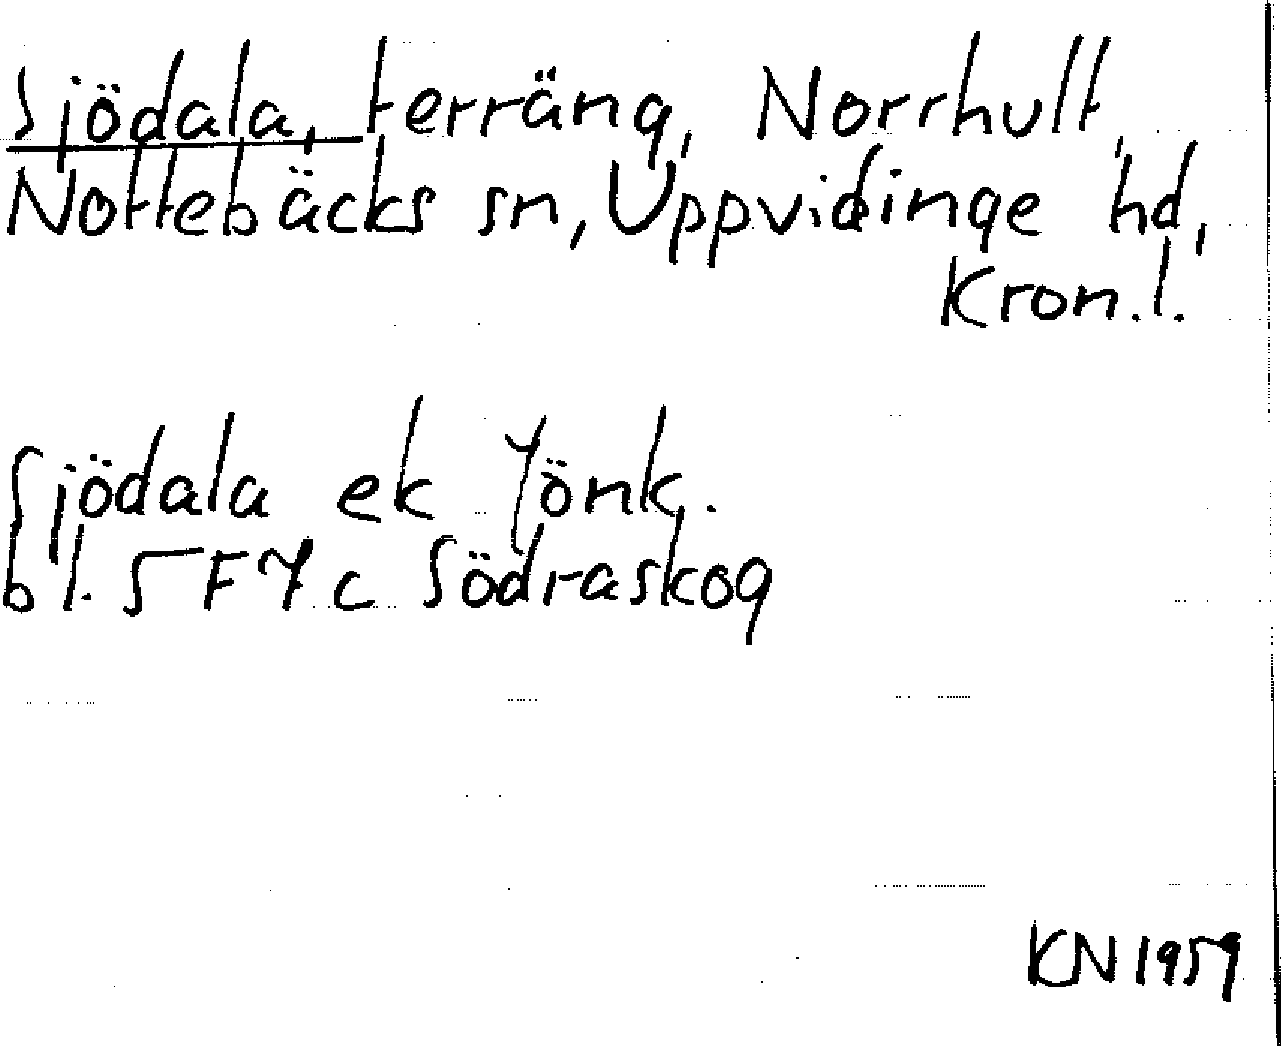 Sjödala, terräng, Norrhult,
Nottebäcks sn, Uppvidinge hd,
Kron.l.
Sjödala ek Jönk.
bl. 5 F 7 c Södraskog
KN 1959